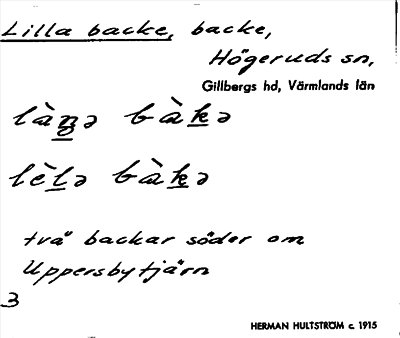 Lilla backe, backe,
Högeruds sn,
Gillbergs hd, Värmlands län
lèḻə bàḵə
två backar söder om
Uppersbytjärn
3
HERMAN HULTSTRÖM c. 1915